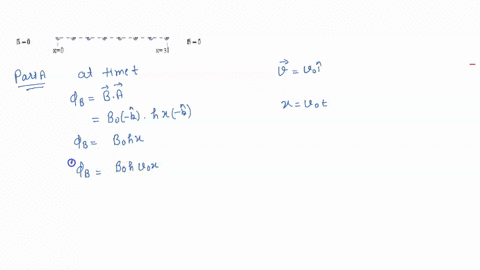 B = 0 x=0 x=3l B = 0
Part A at time t
ϕ_B = B⃗.A⃗
= B₀(-k̂) . hx(-k̂)
ϕ_B = B₀hx
① ϕ_B = B₀hv₀x
v⃗ = v₀î
x = v₀t